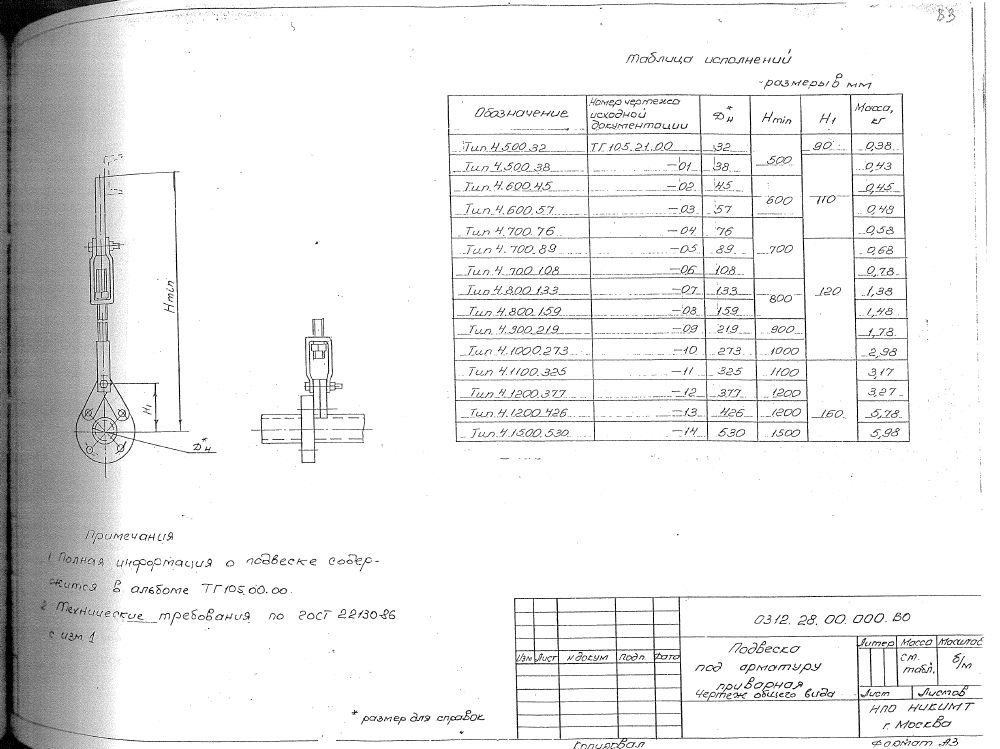 83
Таблица исполнений
размеры в мм
Обозначение Номер чертежа исходной документации Дн* Hmin H1 Масса, кг
Тип 4.500.32 ТГ105.21.00 32 500 90 0,38
Тип 4.500.38 -01 38 110 0,43
Тип 4.600.45 -02 45 600 0,45
Тип 4.600.57 -03 57 0,48
Тип 4.700.76 -04 76 700 0,58
Тип 4.700.89 -05 89 120 0,68
Тип 4.700.108 -06 108 0,78
Тип 4.800.133 -07 133 800 1,38
Тип 4.800.159 -08 159 1,48
Тип 4.900.219 -09 219 900 1,78
Тип 4.1000.273 -10 273 1000 2,98
Тип 4.1100.325 -11 325 1100 160 3,17
Тип 4.1200.377 -12 377 1200 3,27
Тип 4.1200.426 -13 426 1200 5,78
Тип 4.1500.530 -14 530 1500 5,98
Hmin
H1
Дн*
Примечания
1 Полная информация о подвеске содер-
жится в альбоме ТГ105.00.00.
2 Технические требования по ГОСТ 22130-86
с изм 1
* размер для справок
0312.28.00.000.ВО
Изм Лист N докум Подп. Дата
Подвеска
под арматуру
приварная
Чертеж общего вида
Литер Масса Масштаб
см. табл. б/м
Лист Листов
НПО НИКИМТ
г. Москва
Копировал Формат А3